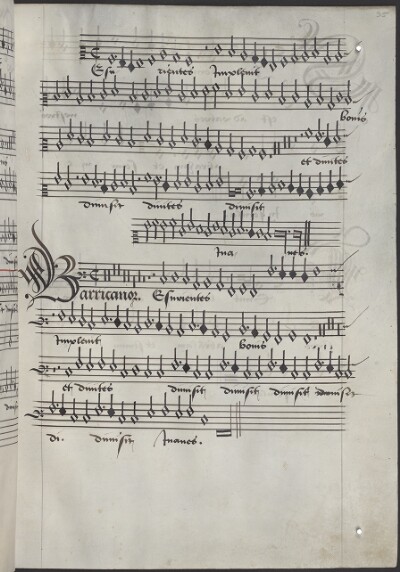 Esu rientes Implevit
bonis
et divites
dimisit divites dimisit
Ina nes.
Barricanor. Esurientes
Implevit bonis
et divites dimisit dimisit dimisit
di. dimisit Inanes.